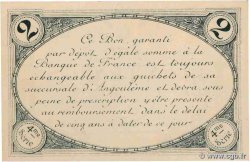 2
2
Ce Bon, garanti
par dépôt d'égale somme à la
Banque de France est toujours
échangeable aux guichets de sa
succursale d'Angoulême et devra sous
peine de prescription être présenté
au remboursement dans le délai
de cinq ans à dater de ce jour
4me Série
4me Série